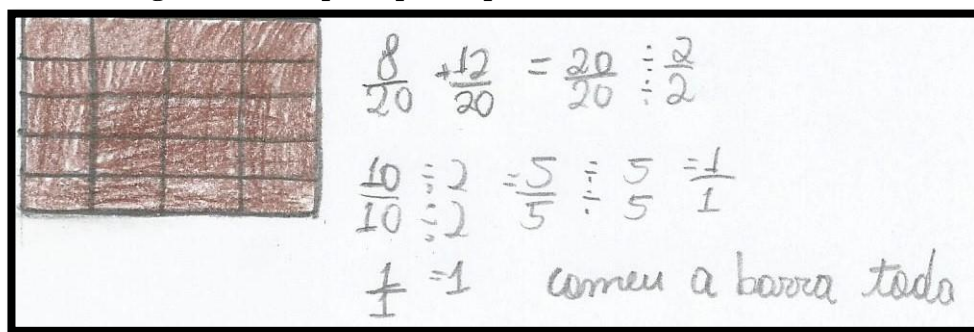 8/20 + 12/20 = 20/20 ÷ 2/÷ 2
10/10 ÷ 2/÷ 2 = 5/5 ÷ 5/÷ 5 = 1/1
1/1 = 1 comeu a barra toda